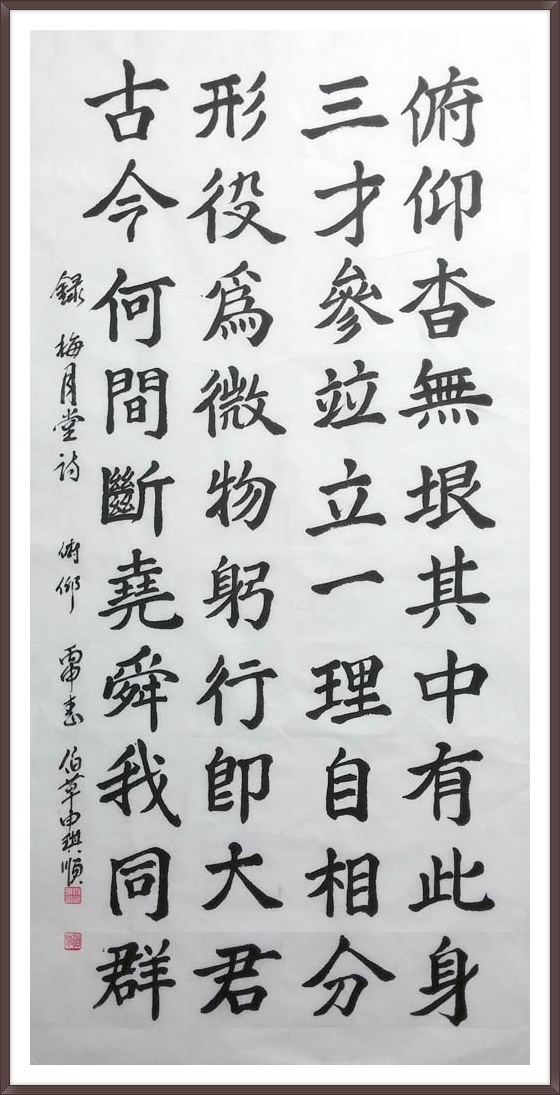 俯仰杳無垠其中有此身
三才參竝立一理自相分
形役爲微物躬行即大君
古今何間斷堯舜我同群
録 梅月堂詩 俯仰 丙申春 伯草申琪順